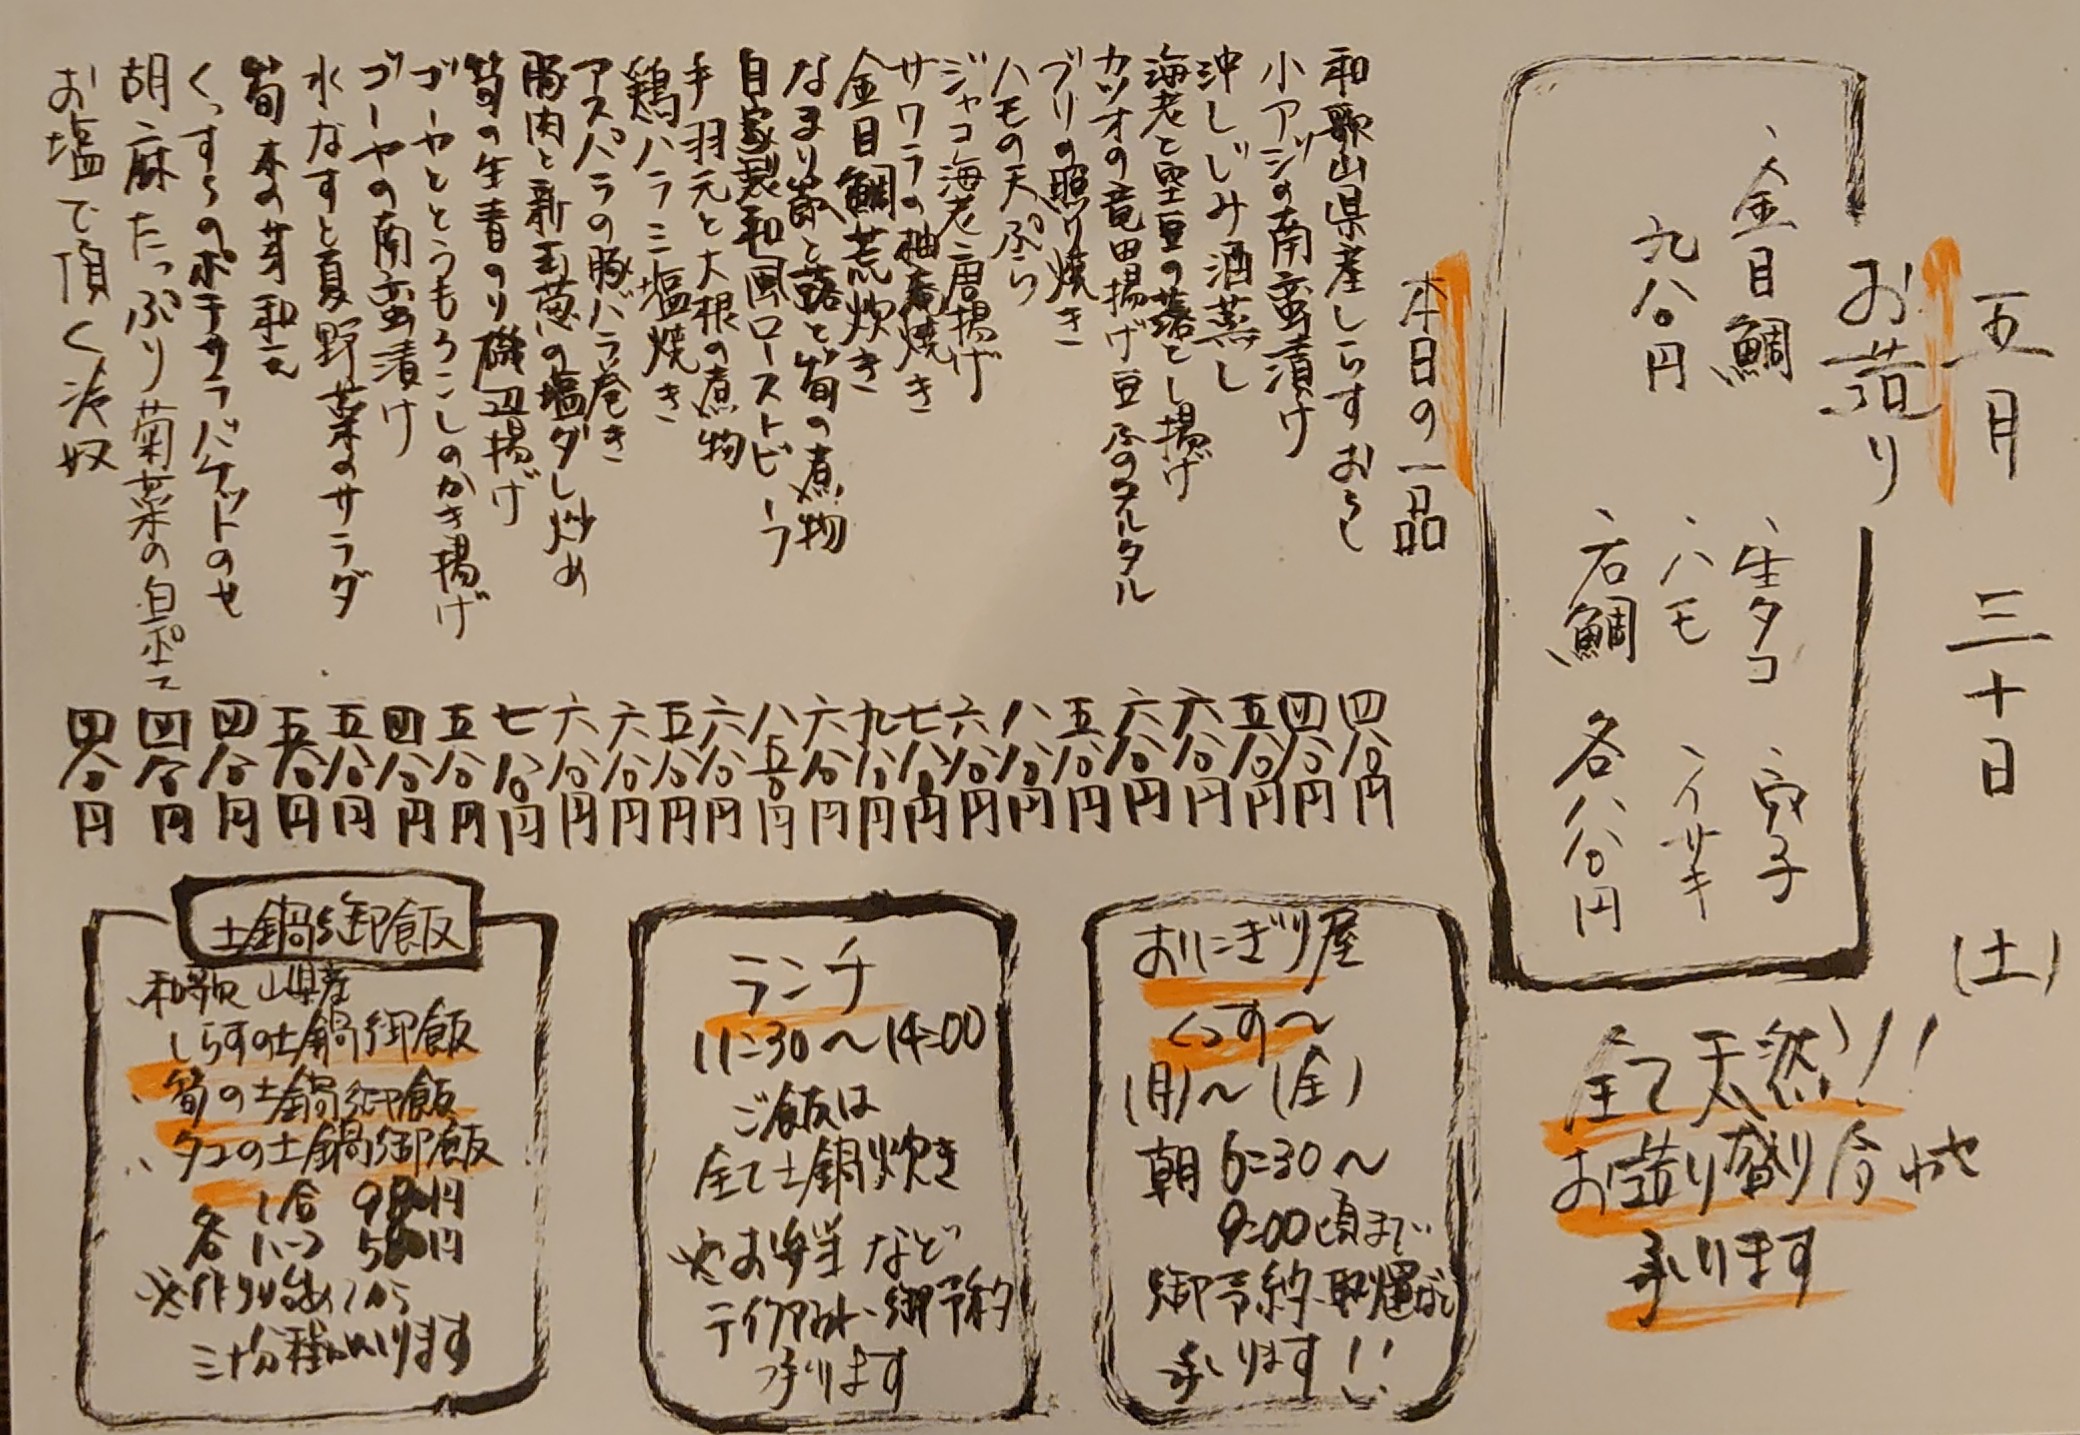 五月 三十日 (土)
お造り
、金目鯛
九〇〇円
、生タコ 、穴子
、ハモ 、イサキ
、石鯛 各八〇〇円
全て天然!!
お造り盛り合わせ
承ります
本日の一品
和歌山県産しらすおろし 四〇〇円
小アジの南蛮漬け 四〇〇円
沖しじみ酒蒸し 五〇〇円
海老と空豆の落とし揚げ 六〇〇円
カツオの竜田揚げ豆ふのタルタル 六〇〇円
ブリの照り焼き 五〇〇円
ハモの天ぷら 八〇〇円
ジャコ海老唐揚げ 六〇〇円
サワラの柚庵焼き 七八〇円
金目鯛荒炊き 九〇〇円
なまり節と蕗と筍の煮物 六〇〇円
自家製和風ローストビーフ 八五〇円
手羽元と大根の煮物 六〇〇円
鶏ハラミ塩焼き 五〇〇円
アスパラの豚バラ巻き 六〇〇円
豚肉と新玉葱の塩ダレ炒め 六〇〇円
筍の生青のり磯辺揚げ 七〇〇円
ゴーヤととうもろこしのかき揚げ 五〇〇円
ゴーヤの南蛮漬け 四〇〇円
水なすと夏野菜のサラダ 五〇〇円
筍木の芽和え 五〇〇円
くっすらのポテサラバケットのせ 四〇〇円
胡麻たっぷり菊菜の白和え 四〇〇円
お塩で頂く冷奴 四〇〇円
おにぎり屋
くっす〜
(月)〜(金)
朝 6:30〜
9:00頃まで
御予約・取置など
承ります!!
ランチ
11:30〜14:00
ご飯は
全て土鍋炊き
※お弁当など
テイクアウト・御予約
承ります
土鍋御飯
和歌山県産
しらすの土鍋御飯
筍の土鍋御飯
タコの土鍋御飯
各 1合 980円
1/2つ 500円
※作り始めてから
三十分程かかります